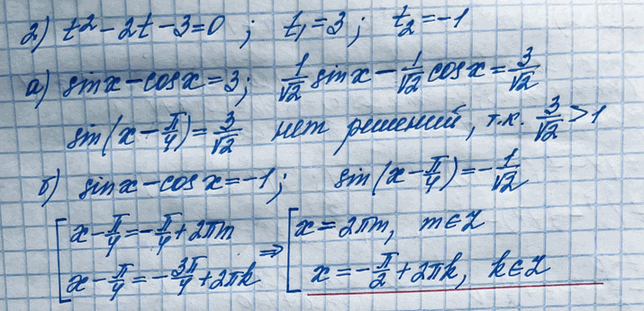 2) t² - 2t - 3 = 0 ; t₁ = 3 ; t₂ = -1
а) sin x - cos x = 3 ; 1/√2 sin x - 1/√2 cos x = 3/√2
sin(x - π/4) = 3/√2 нет решений, т.к. 3/√2 > 1
б) sin x - cos x = -1 ; sin(x - π/4) = -1/√2
[ x - π/4 = -π/4 + 2πm ⇒ [ x = 2πm, m ∈ Z
[ x - π/4 = -3π/4 + 2πk ⇒ [ x = -π/2 + 2πk, k ∈ Z